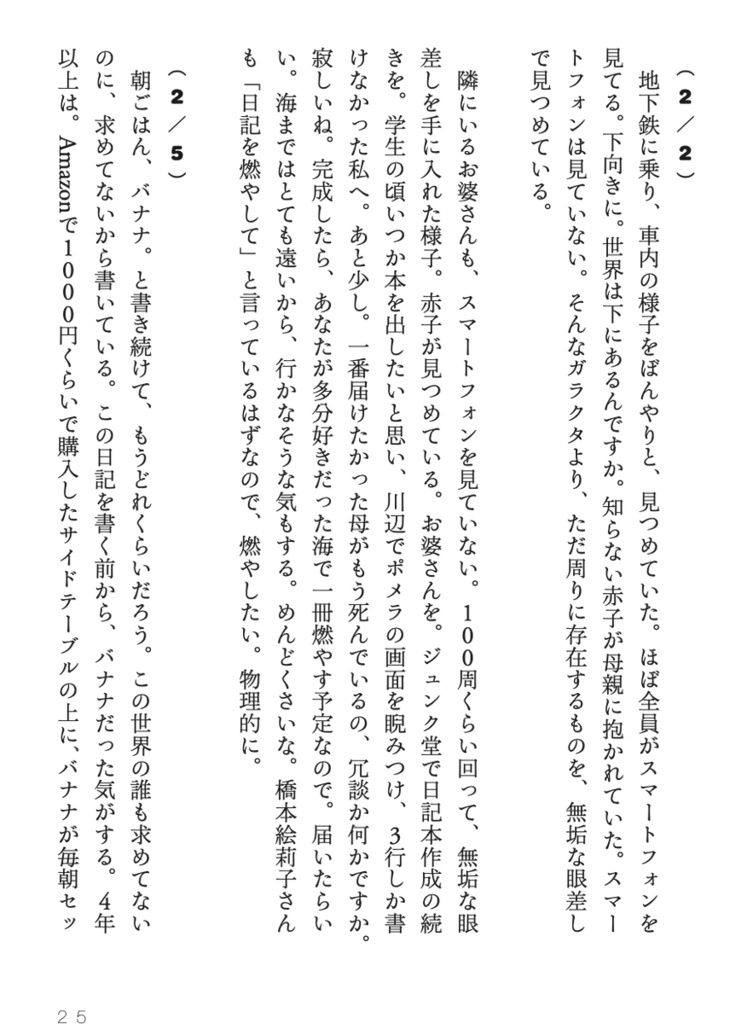 （2／2）
地下鉄に乗り、車内の様子をぼんやりと、見つめていた。ほぼ全員がスマートフォンを
見てる。下向きに。世界は下にあるんですか。知らない赤子が母親に抱かれていた。スマー
トフォンは見ていない。そんなガラクタより、ただ周りに存在するものを、無垢な眼差し
で見つめている。
隣にいるお婆さんも、スマートフォンを見ていない。100周くらい回って、無垢な眼
差しを手に入れた様子。赤子が見つめている。お婆さんを。ジュンク堂で日記本作成の続
きを。学生の頃いつか本を出したいと思い、川辺でポメラの画面を睨みつけ、3行しか書
けなかった私へ。あと少し。一番届けたかった母がもう死んでいるの、冗談か何かですか。
寂しいね。完成したら、あなたが多分好きだった海で一冊燃やす予定なので。届いたらい
い。海まではとても遠いから、行かなそうな気もする。めんどくさいな。橋本絵莉子さん
も「日記を燃やして」と言っているはずなので、燃やしたい。物理的に。
（2／5）
朝ごはん、バナナ。と書き続けて、もうどれくらいだろう。この世界の誰も求めてない
のに、求めてないから書いている。この日記を書く前から、バナナだった気がする。4年
以上は。Amazonで1000円くらいで購入したサイドテーブルの上に、バナナが毎朝セッ
25